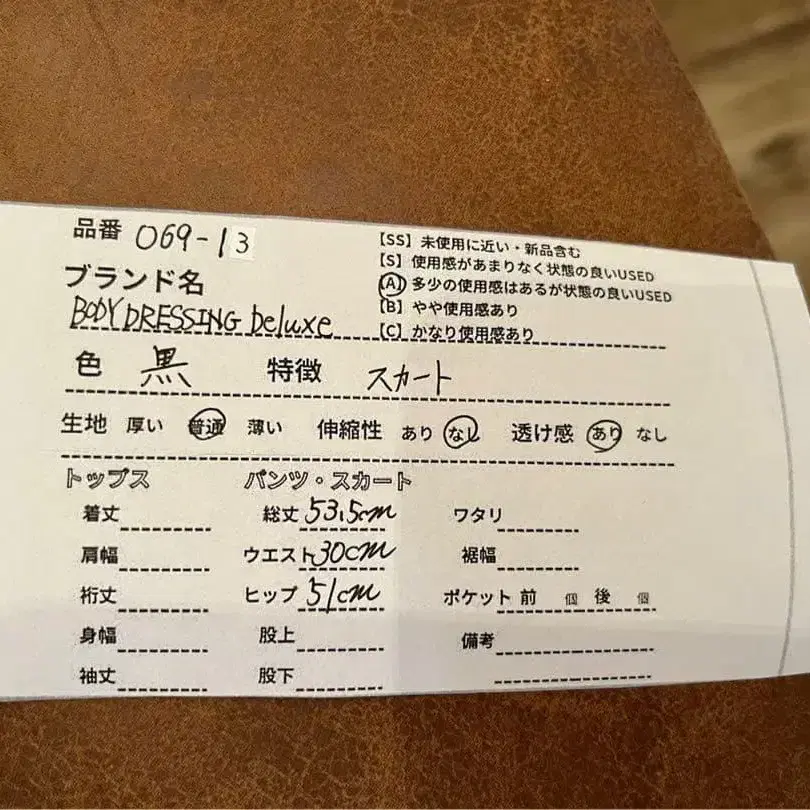 品番 069-13
【SS】未使用に近い・新品含む
【S】使用感があまりなく状態の良いUSED
【A】多少の使用感はあるが状態の良いUSED
【B】やや使用感あり
【C】かなり使用感あり
ブランド名
BODY DRESSING Deluxe
色 黒 特徴 スカート
生地 厚い 普通 薄い 伸縮性 あり なし 透け感 あり なし
トップス パンツ・スカート
着丈 総丈 53.5cm ワタリ
肩幅 ウエスト 30cm 裾幅
裄丈 ヒップ 51cm ポケット 前 個 後 個
身幅 股上 備考
袖丈 股下